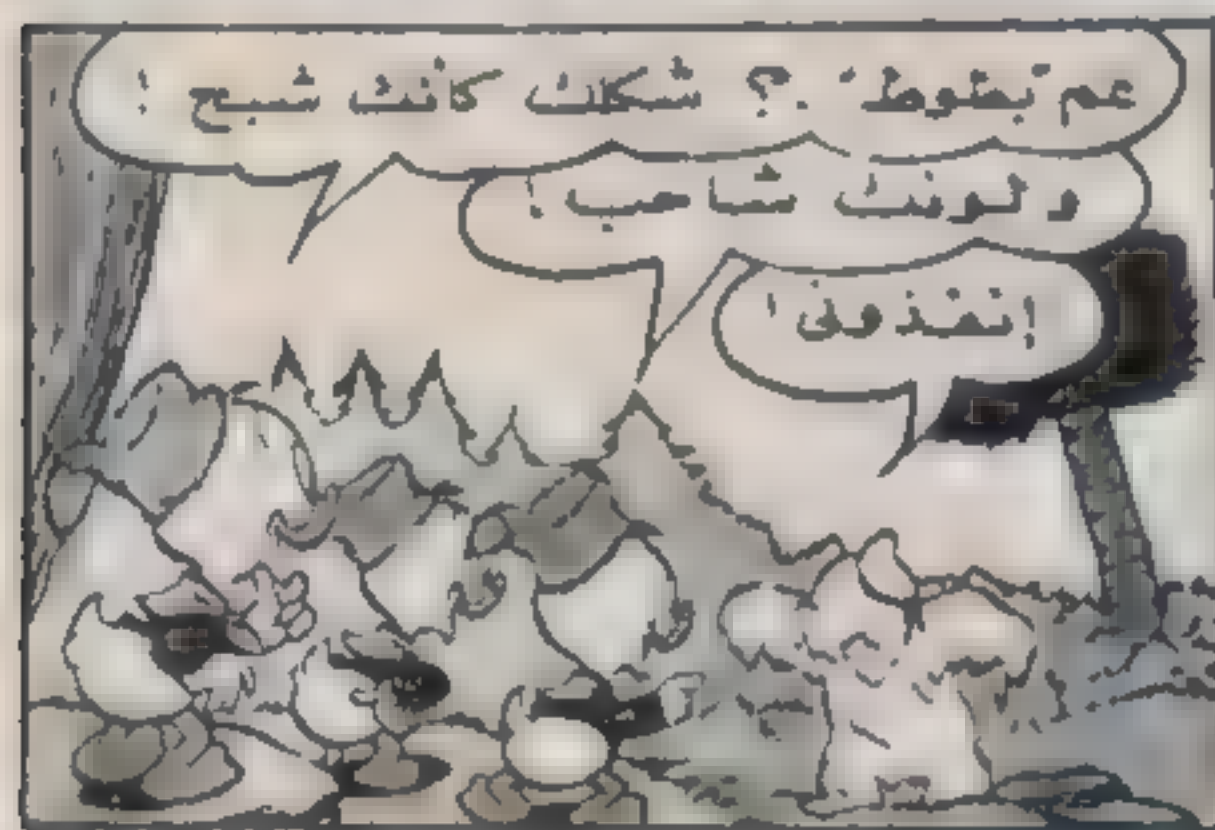 عم بطوط .؟ شكلك كأنك شبح !
ولونك شاحب !
إنقذونى !